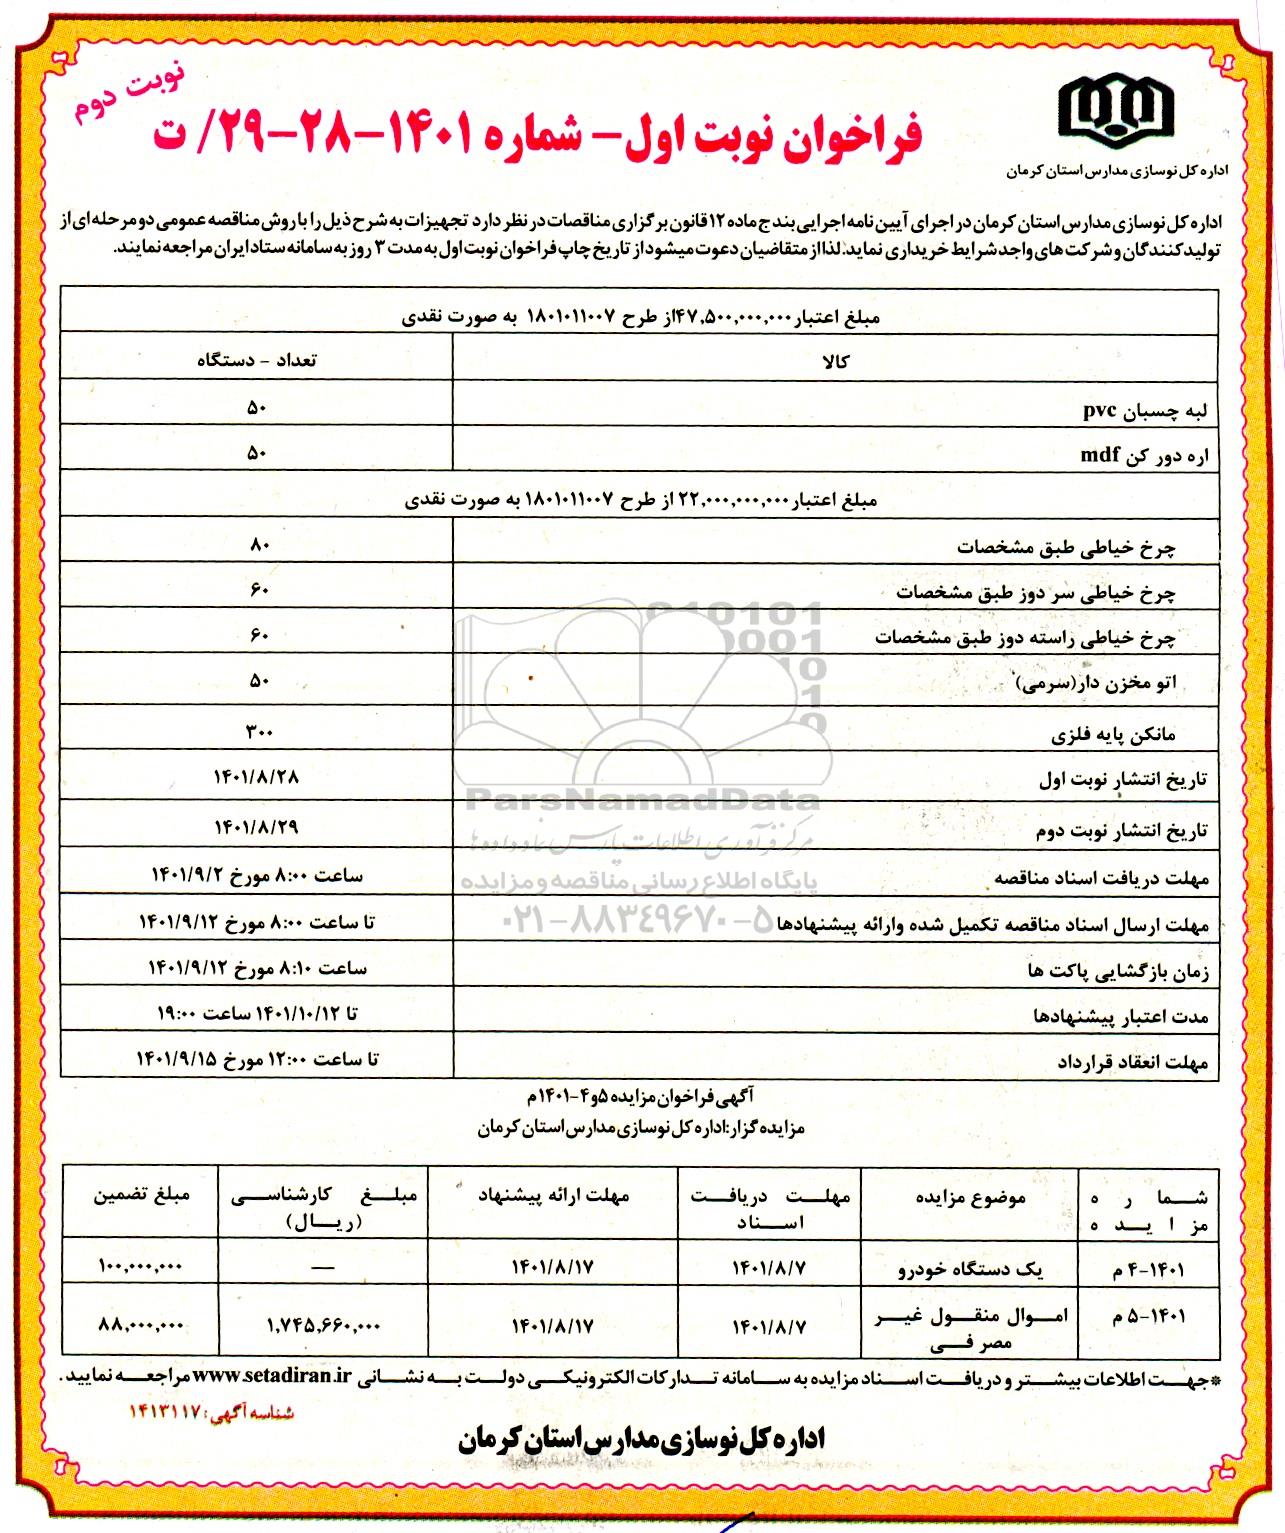 نوبت دوم
فراخوان نوبت اول - شماره ۱۴۰۱-۲۸-۲۹/ ت
اداره کل نوسازی مدارس استان کرمان
اداره کل نوسازی مدارس استان کرمان در اجرای آیین نامه اجرایی بند ج ماده ۱۲ قانون برگزاری مناقصات در نظر دارد تجهیزات به شرح ذیل را با روش مناقصه عمومی دو مرحله ای از
تولید کنندگان و شرکت های واجد شرایط خریداری نماید. لذا از متقاضیان دعوت میشود از تاریخ چاپ فراخوان نوبت اول به مدت ۳ روز به سامانه ستاد ایران مراجعه نمایند.
مبلغ اعتبار ۴۷,۵۰۰,۰۰۰,۰۰۰از طرح ۱۸۰۱۰۱۱۰۰۷ به صورت نقدی
کالا تعداد - دستگاه
لبه چسبان pvc ۵۰
اره دور کن mdf ۵۰
مبلغ اعتبار ۲۲,۰۰۰,۰۰۰,۰۰۰ از طرح ۱۸۰۱۰۱۱۰۰۷ به صورت نقدی
چرخ خیاطی طبق مشخصات ۸۰
چرخ خیاطی سر دوز طبق مشخصات ۶۰
چرخ خیاطی راسته دوز طبق مشخصات ۶۰
اتو مخزن دار(سرمی) ۵۰
مانکن پایه فلزی ۳۰۰
تاریخ انتشار نوبت اول ۱۴۰۱/۸/۲۸
تاریخ انتشار نوبت دوم ۱۴۰۱/۸/۲۹
مهلت دریافت اسناد مناقصه ساعت ۸:۰۰ مورخ ۱۴۰۱/۹/۲
مهلت ارسال اسناد مناقصه تکمیل شده وارائه پیشنهادها تا ساعت ۸:۰۰ مورخ ۱۴۰۱/۹/۱۲
زمان بازگشایی پاکت ها ساعت ۸:۱۰ مورخ ۱۴۰۱/۹/۱۲
مدت اعتبار پیشنهادها تا ۱۴۰۱/۱۰/۱۲ ساعت ۱۹:۰۰
مهلت انعقاد قرارداد تا ساعت ۱۲:۰۰ مورخ ۱۴۰۱/۹/۱۵
ParsNamadData
مرکز فرآوری اطلاعات پارس نماد داده ها
پایگاه اطلاع رسانی مناقصه و مزایده
۰۲۱-۸۸۳۴۹۶۷۰-۵
آگهی فراخوان مزایده ۵و۴-۱۴۰۱م
مزایده گزار: اداره کل نوسازی مدارس استان کرمان
شماره مزایده موضوع مزایده مهلت دریافت اسناد مهلت ارائه پیشنهاد مبلغ کارشناسی (ریال) مبلغ تضمین
۱۴۰۱-۴ م یک دستگاه خودرو ۱۴۰۱/۸/۷ ۱۴۰۱/۸/۱۷ — ۱۰۰,۰۰۰,۰۰۰
۱۴۰۱-۵ م اموال منقول غیر مصرفی ۱۴۰۱/۸/۷ ۱۴۰۱/۸/۱۷ ۱,۷۴۵,۶۶۰,۰۰۰ ۸۸,۰۰۰,۰۰۰
*جهت اطلاعات بیشتر و دریافت اسناد مزایده به سامانه تدارکات الکترونیکی دولت به نشانی www.setadiran.ir مراجعه نمایید.
شناسه آگهی: ۱۴۱۳۱۱۷
اداره کل نوسازی مدارس استان کرمان